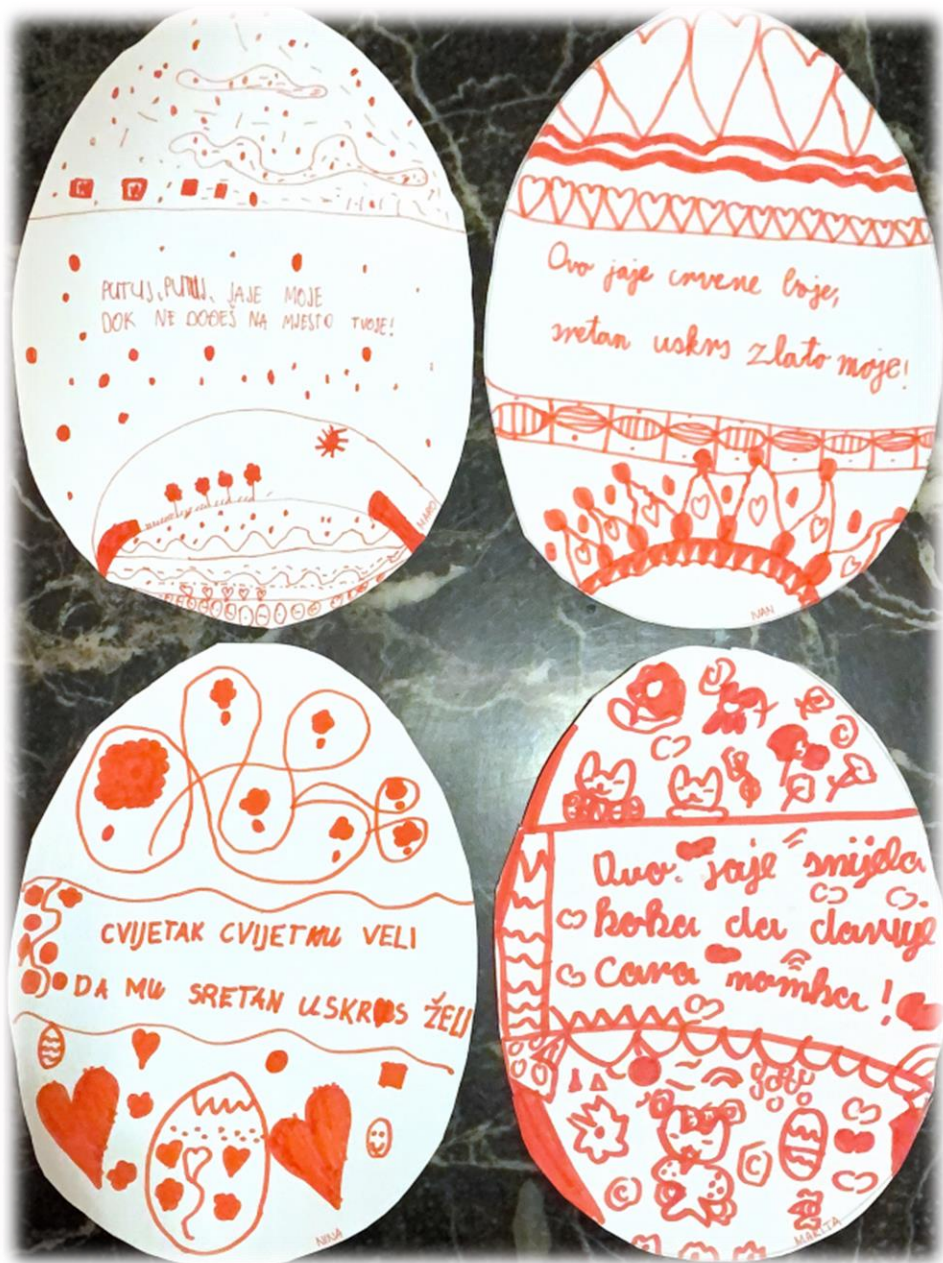 PUTUJ, PUTUJ, JAJE MOJE
DOK NE DOĐEŠ NA MJESTO TVOJE!
MARO
Ovo jaje crvene boje,
sretan uskrs zlato moje!
IVAN
CVIJETAK CVIJETKU VELI
DA MU SRETAN USKRS ŽELI
NINA
Ovo jaje snijela
koka da daruje
Cara momka!
MARITA